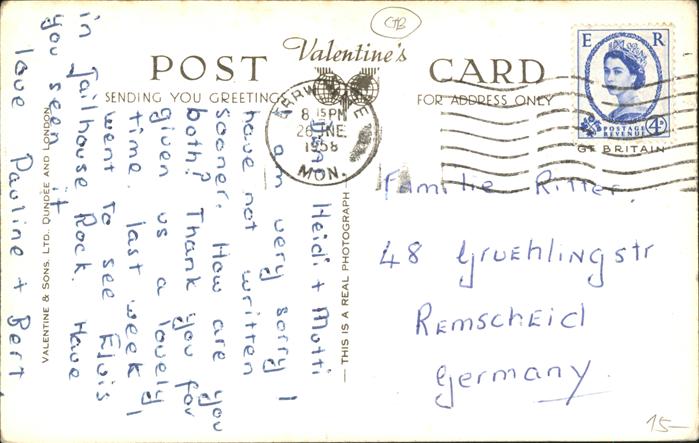 CTB
Valentine's
POST CARD
SENDING YOU GREETINGS
FOR ADDRESS ONLY
E R
POSTAGE
REVENUE
4D
GT BRITAIN
8 15 PM
26 JNE
1958
MON.
Heidi + Mutti
I am very sorry I
have not written
sooner. How are you
both? Thank you for
given us a lovely
time. last week I
went to see Elvis
in Jailhouse Rock. Have
you seen it
love Pauline + Bert
VALENTINE & SONS, LTD. DUNDEE AND LONDON
THIS IS A REAL PHOTOGRAPH
Familie Ritter.
48 Gruehlingstr
Remscheid
Germany.
15-